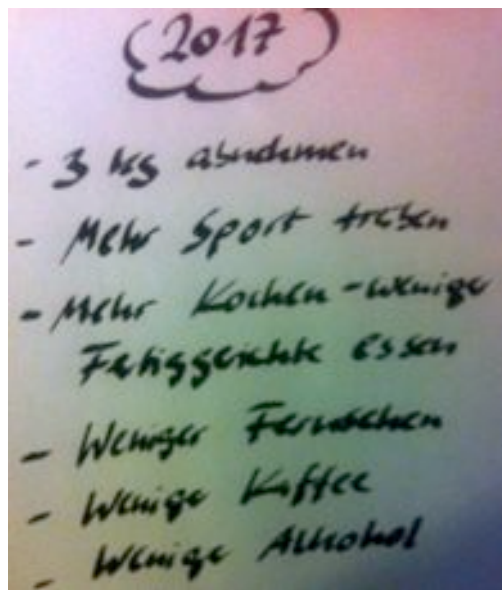 2017
- 3 kg abnehmen
- Mehr Sport treiben
- Mehr Kochen - wenige
Fertiggerichte essen
- Weniger Fernsehen
- Wenige Kaffee
- Wenige Alkohol